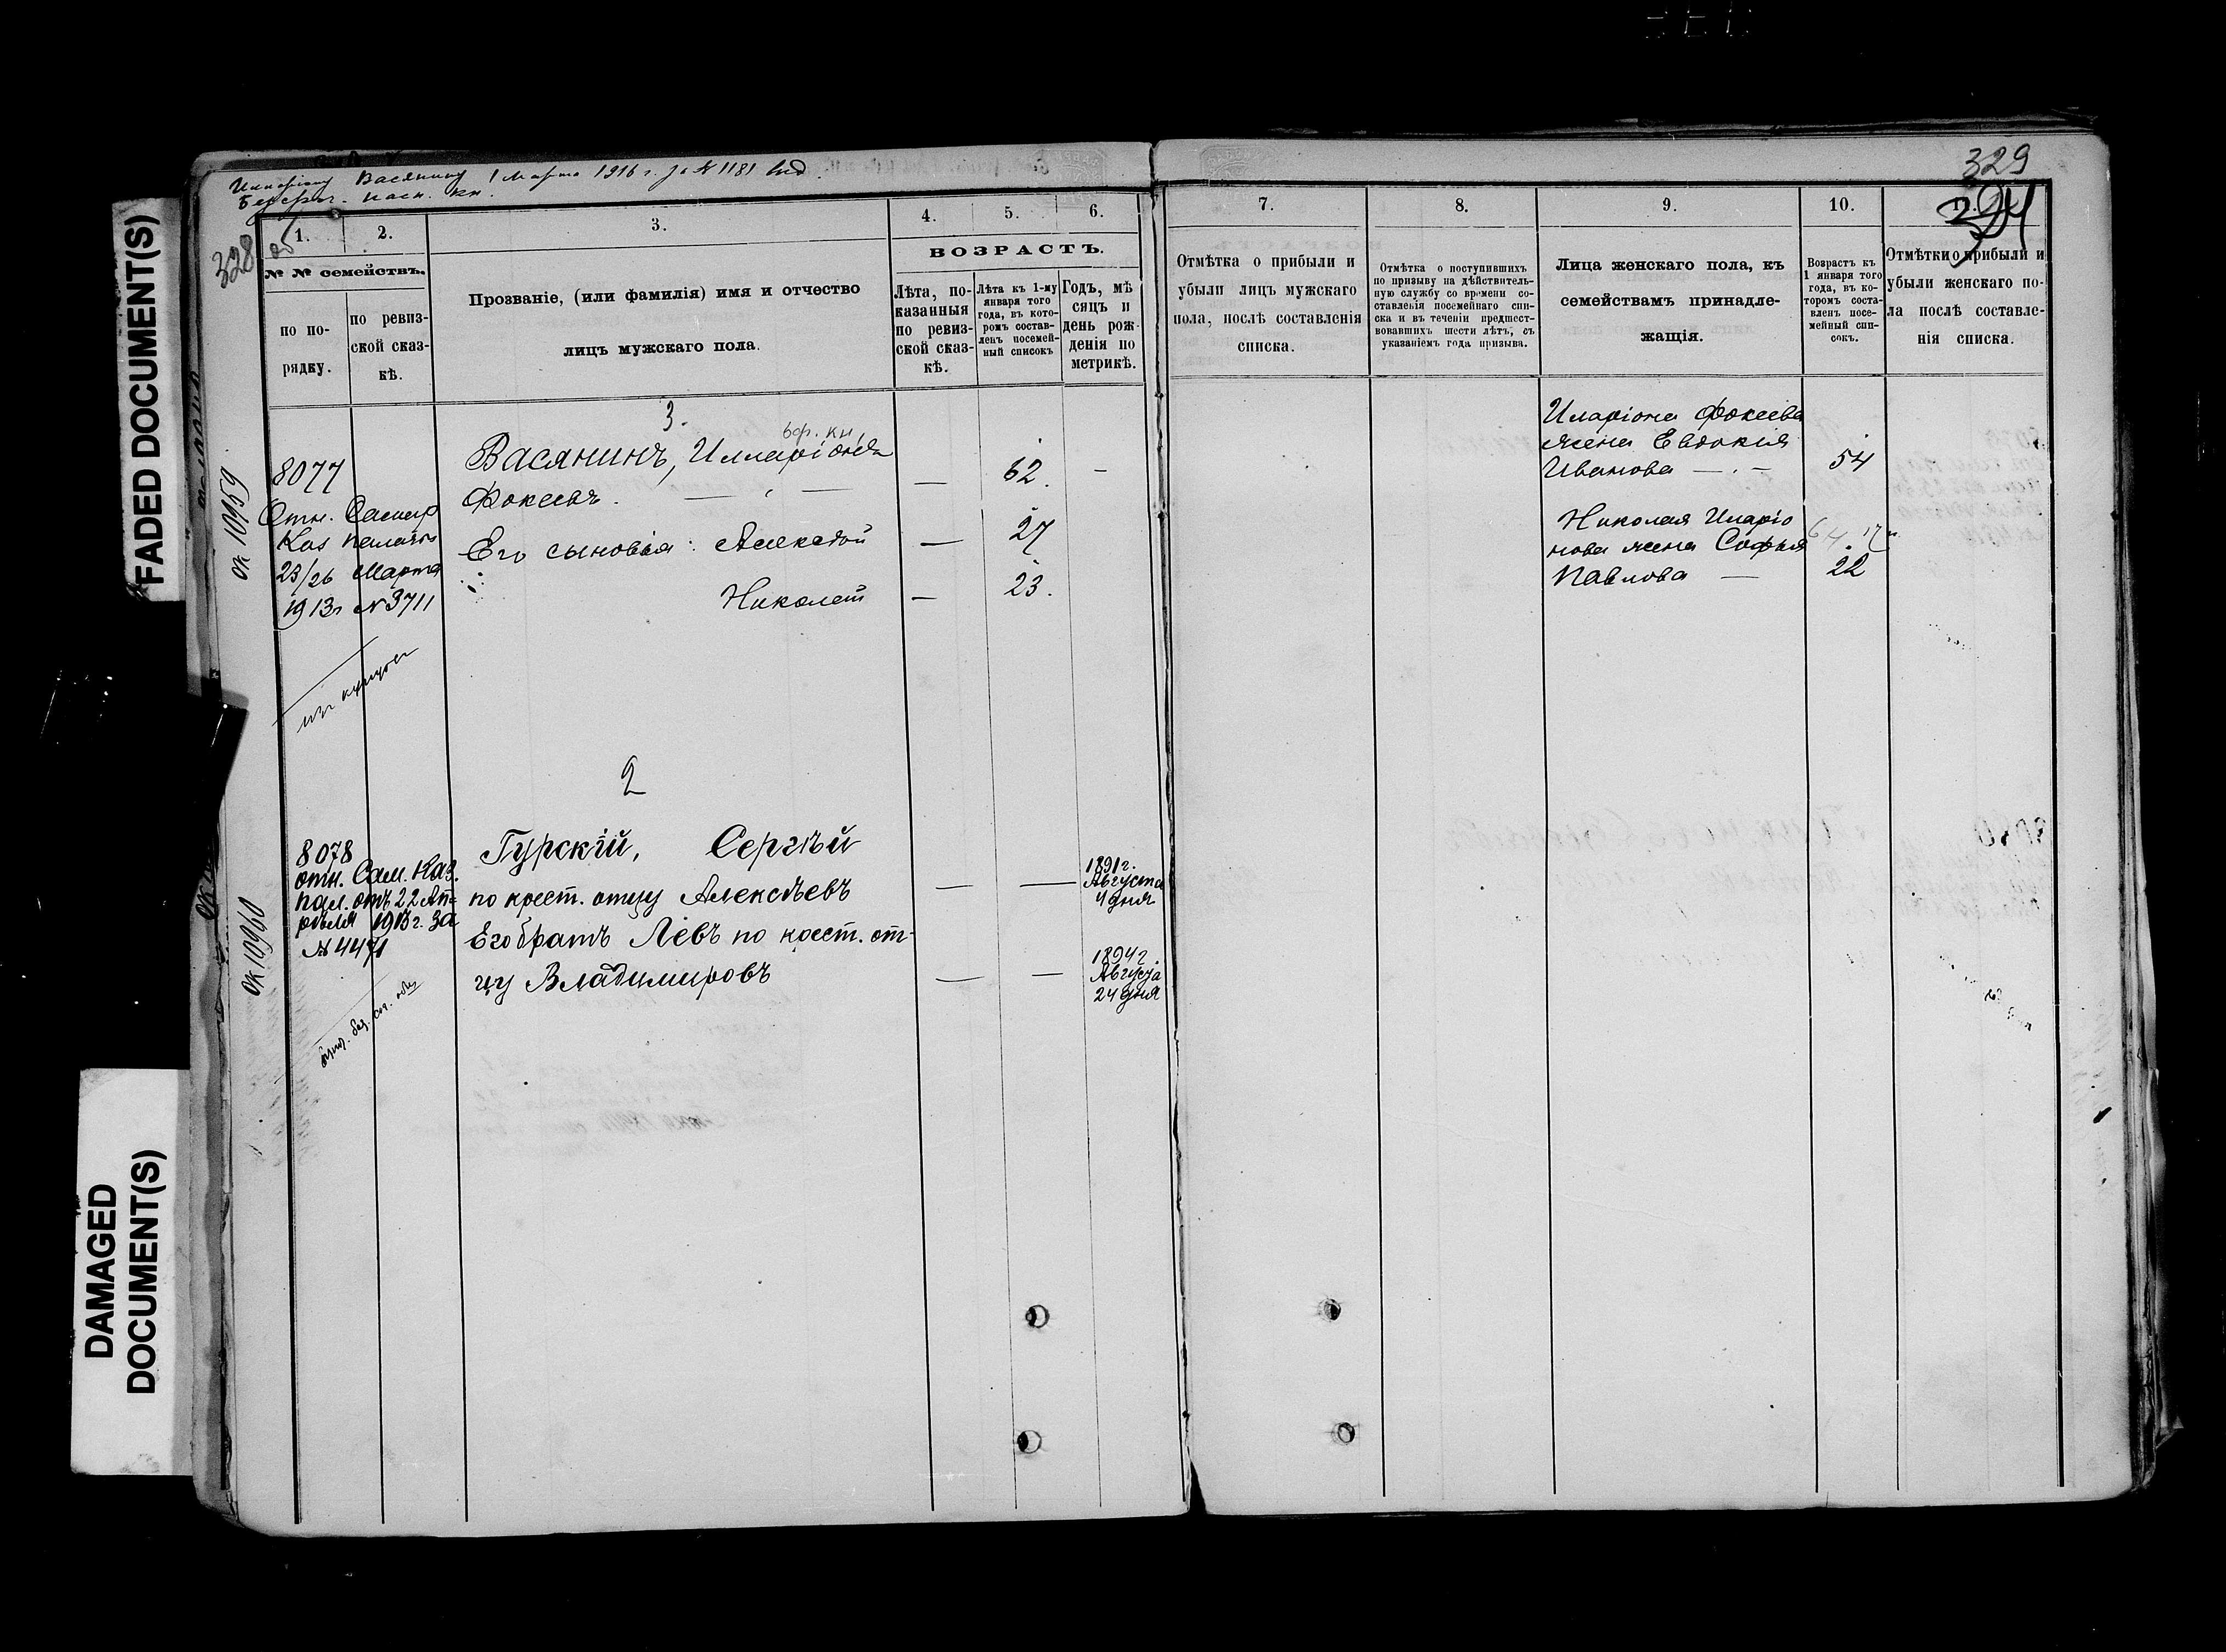 329
Васянину 1 Марта 1916 г. за № 1181 выд.
328 об
1.
2.
3.
4.
5.
6.
№ № семействъ.
по по-
рядку.
по ревиз-
ской сказ-
кѣ.
Прозваніе, (или фамилія) имя и отчество
лицъ мужскаго пола.
ВОЗРАСТЪ.
Лѣта, по-
казанныя
по ревиз-
ской сказ-
кѣ.
Лѣта къ 1-му
января того
года, въ кото-
ромъ состав-
ленъ посемей-
ный списокъ
Годъ, мѣ
сяцъ и
день рож-
денія по
метрикѣ.
3.
ок 10959
8077
Отн. Самар
Каз палаты
23/26 Марта
1913г № 3711
изъ купцовъ
бср. кн.
Васянинъ, Илларіонъ
Фокеевъ. — 62. –
Его сыновья: Алексѣй — 27
Николай — 23.
2
ок 10960
8078
отн. Сам. Каз.
пал. отъ 22 Ап-
рѣля 1913 г. за
№ 4471
Гурскій, Сергѣй
по крест. отцу Алексѣевъ — —
1891 г.
Августа
4 дня
Его братъ Левъ по крест. от-
цу Владимировъ — —
1894 г.
Августа
24 дня
7.
8.
9.
10.
11.
Отмѣтка о прибыли и
убыли лицъ мужскаго
пола, послѣ составленія
списка.
Отмѣтка о поступившихъ
по призыву на дѣйствитель-
ную службу со времени со-
ставленія посемейнаго спи-
ска и въ теченіи предшест-
вовавшихъ шести лѣтъ, съ
указаніемъ года призыва.
Лица женскаго пола, къ
семействамъ принадле-
жащія.
Возрастъ къ
1 января того
года, въ ко-
торомъ соста-
вленъ посе-
мейный спи-
сокъ.
Отмѣтки о прибыли и
убыли женскаго по-
ла послѣ составле-
нія списка.
Иларіона Фокеева
жена Евдокія
Иванова — 54
Николая Иларіо
нова жена Софья
Павлова — 22
FADED DOCUMENT(S)
DAMAGED
DOCUMENT(S)